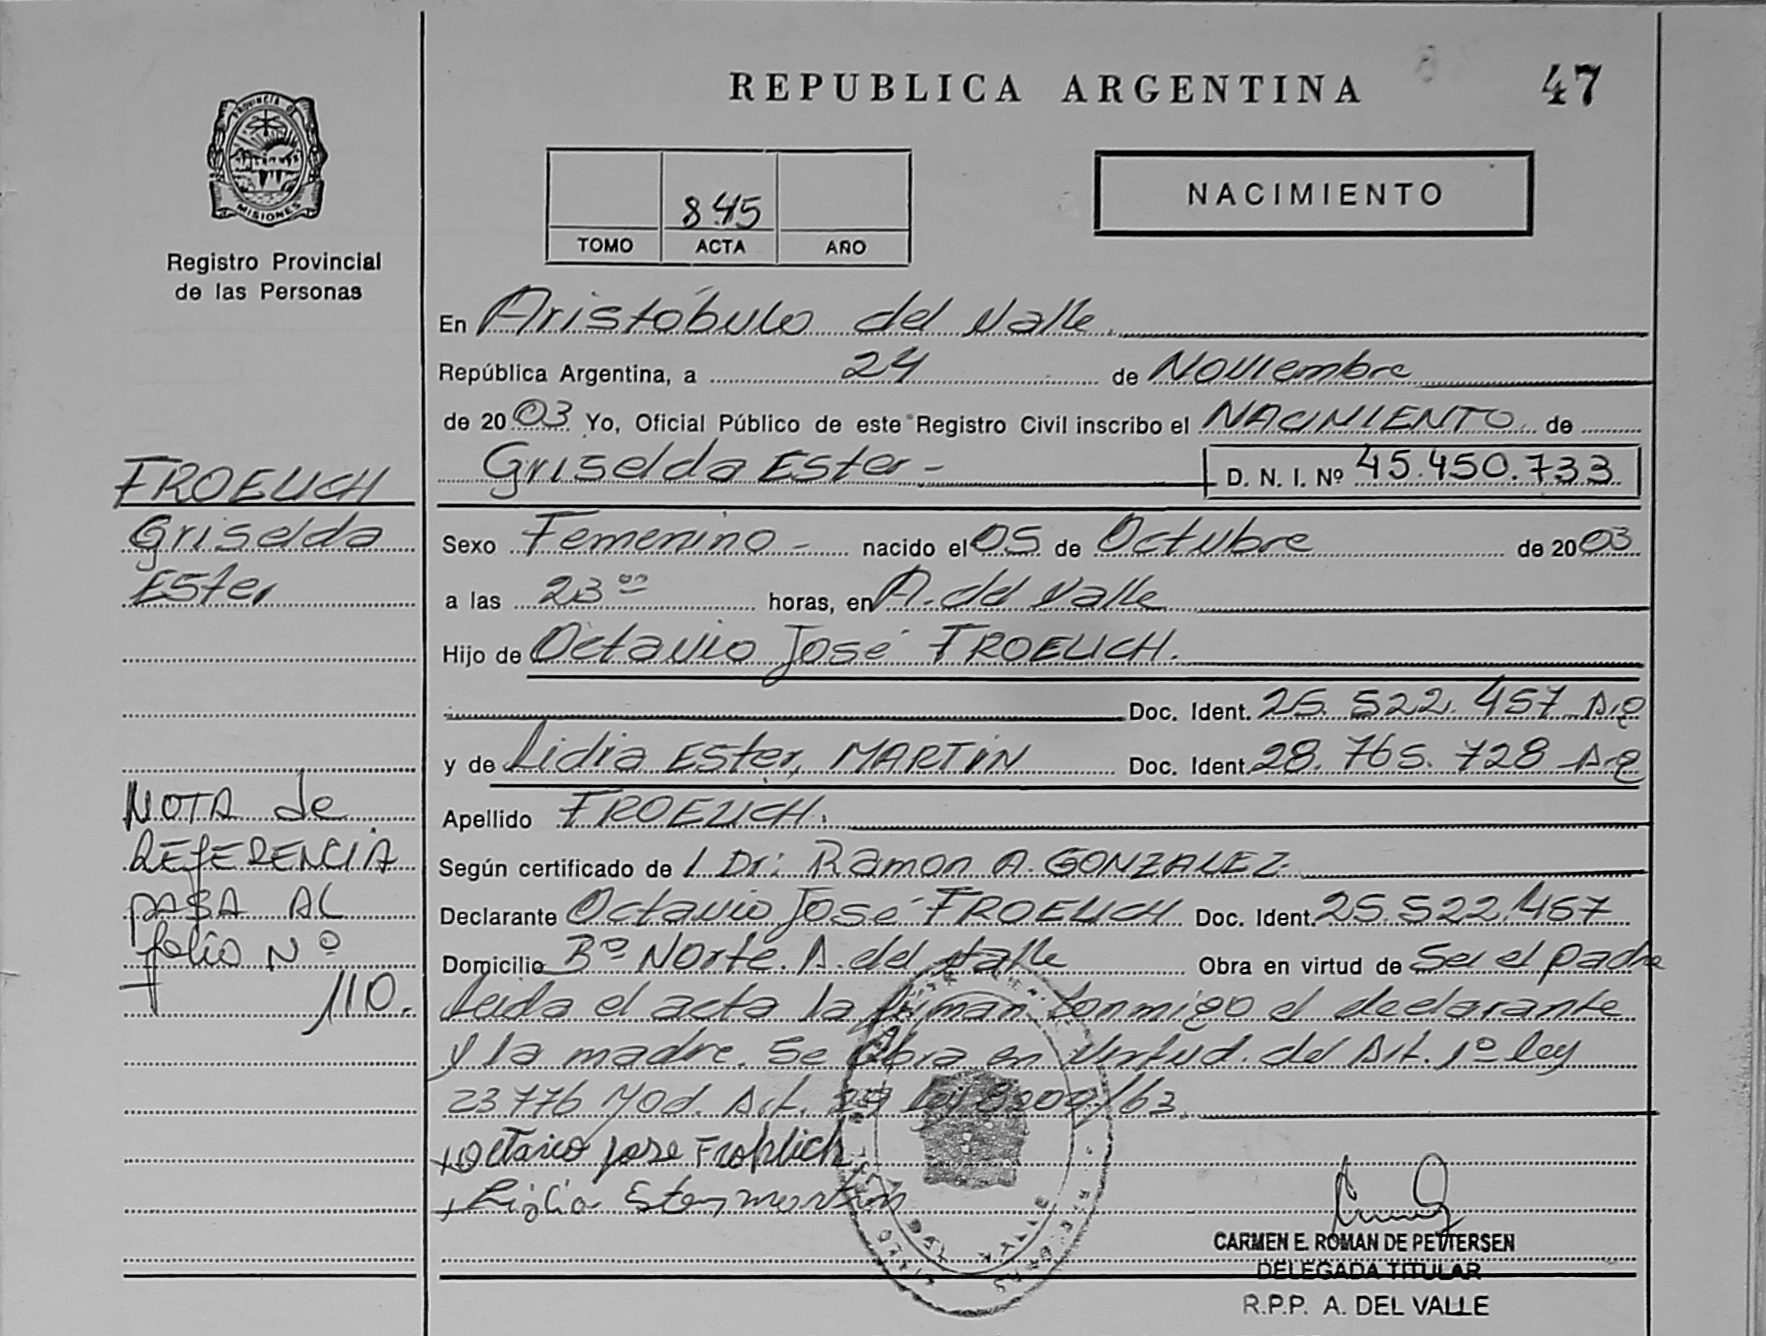 REPUBLICA ARGENTINA
47
PROVINCIA DE
MISIONES
Registro Provincial
de las Personas
845
TOMO ACTA AÑO
NACIMIENTO
En Aristóbulo del Valle.
República Argentina, a 24 de Noviembre
de 2003 Yo, Oficial Público de este Registro Civil inscribo el NACIMIENTO de
Griselda Ester - D. N. I. Nº 45.450.733
Sexo Femenino - nacido el 05 de Octubre de 2003
a las 23 00 horas, en A. del Valle
Hijo de Octavio José FROELICH.
Doc. Ident. 25. 522. 457 Arg
y de Lidia Ester, MARTIN Doc. Ident. 28. 765. 728 Arg
Apellido FROELICH.
Según certificado de / Dr: Ramon A. GONZALEZ.
Declarante Octavio José FROELICH Doc. Ident. 25.522.457
Domicilio Bº Norte. A. del Valle Obra en virtud de Ser el padre
Leida el acta la firman Conmigo el declarante
y la madre. Se Obra en Virtud. del Art. 1º ley
23776 Mod. Art. 29 Ley 8204/63.
Octavio jose Frohlich
Lidia Ester martin
CARMEN E. ROMAN DE PETTERSEN
DELEGADA TITULAR
R.P.P. A. DEL VALLE
DEL VALLE
FROELICH
Griselda
Ester
NOTA de
REFERENCIA
PASA AL
folio Nº
110.